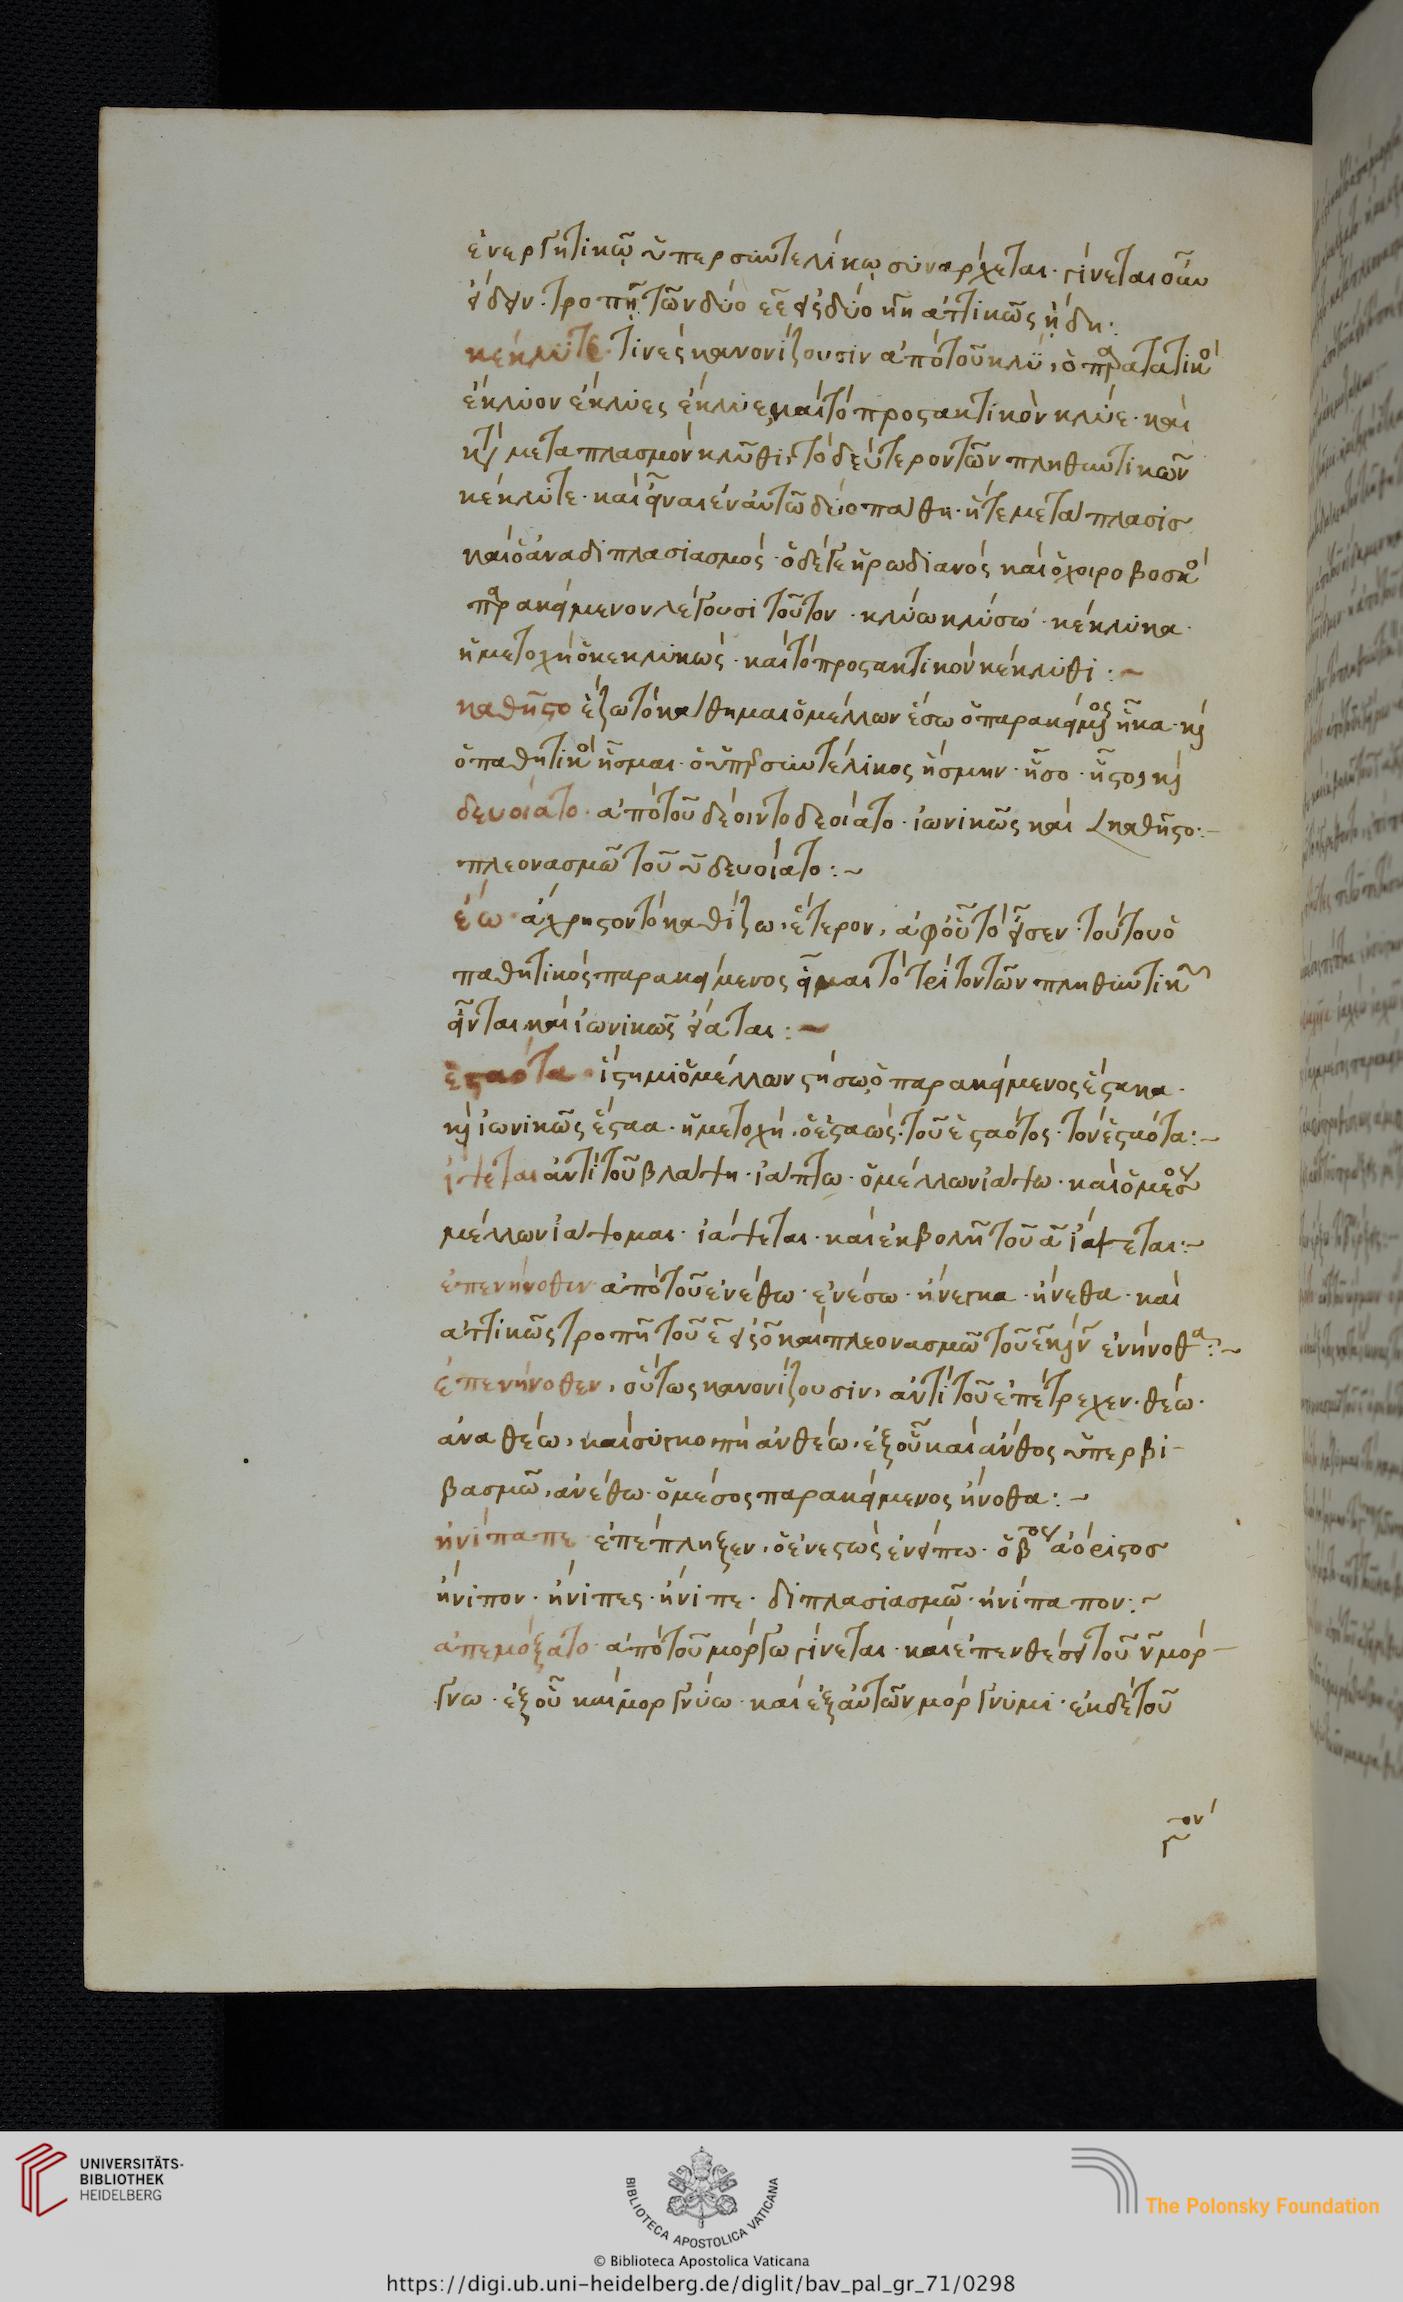 ἐνεργητικῶ ὑπερσυντελίκω συνάρχεται· γίνεται οὖν
εἴδειν· τροπῇ τῶν δύο εε εἰς δύο ηη ἀττικῶς ἤδη:
κέκλυτε· τινὲς κανονίζουσιν ἀπὸ τοῦ κλύω, ὁ παρατατικὸς
ἔκλυον ἔκλυες ἔκλυε, καὶ τὸ προςακτικὸν κλύε· καὶ
κατὰ μεταπλασμὸν κλῦθι, τὸ δεύτερον τῶν πληθυντικῶν
κέκλυτε· καὶ εἶναι ἐν αὐτῶ δύο πάθη· ἥτε μετάπλασις
καὶ ὁ ἀναδιπλασιασμός· ὁ δέ γε ἡρωδιανὸς καὶ ὁ χοιροβοσκὸς
παρακείμενον λέγουσι τοῦτον· κλύω κλύσω κέκλυκα·
ἡ μετοχὴ ὁ κεκλυκώς· καὶ τὸ προςακτικὸν κέκλυθι:~
καθῆστο ἕζω τὸ κάθημαι ὁ μέλλων ἕσω ὁ παρακείμενος ἧκα· καὶ
ὁ παθητικὸς ἧσμαι· ὁ ὑπερσυντέλικος ἥσμην· ἧσο· ἧστο, καὶ
δευοίατο· ἀπὸ τοῦ δέοιντο δεοίατο· ἰωνικῶς καὶ καθῆστο:-
πλεονασμῶ τοῦ υ δευοίατο:~
ἕω ἄχρηστον τὸ καθίζω, ἕτερον, ἀφ' οὗ τὸ εἷσεν· τούτου ὁ
παθητικὸς παρακείμενος εἷμαι τὸ τρίτον τῶν πληθυντικῶν
εἷνται καὶ ἰωνικῶς εἵαται:~
ἑσταότα· ἵστημι ὁ μέλλων στήσω, ὁ παρακείμενος ἕστακα·
καὶ ἰωνικῶς ἕσταα· ἡ μετοχή, ὁ ἑσταώς· τοῦ ἑσταότος· τὸν ἑσταότα:~
ἴψεται ἀντὶ τοῦ βλάψη· ἰάπτω· ὁ μέλλων ἰάψω· καὶ ὁ μέσος
μέλλων ἰάψομαι· ἰάψεται· καὶ ἐκβολῆ τοῦ α ἴψεται:~
ἐπενήνοθεν ἀπὸ τοῦ ἐνέθω· ἐνέσω· ἤνεγκα· ἤνεθα· καὶ
ἀττικῶς τροπῆ τοῦ ε εἰς ο καὶ πλεονασμῶ τοῦ ε καὶ ν ἐνήνοθα:~
ἐπενήνοθεν, οὕτως κανονίζουσιν, ἀντὶ τοῦ ἐπέτρεχεν· θέω·
ἀναθέω, καὶ συγκοπῆ ἀνθέω, ἐξ οὗ καὶ ἄνθος ὑπερβι-
βασμῶ, ἀνέθω· ὁ μέσος παρακείμενος ἤνοθα:~
ἠνίπαπε ἐπέπληξεν, ὁ ἐνεστὼς ἐνίπτω· ὁ βος ἀόριστος
ἤνιπον· ἤνιπες· ἤνιπε· διπλασιασμῶ· ἠνίπαπον:~
ἀπεμόξατο· ἀπὸ τοῦ μόργω γίνεται· καὶ ἐπενθέσει τοῦ ν μόρ-
γνω· ἐξ οὗ καὶ μοργνύω· καὶ ἐξ αὐτῶν μόργνυμι· ἐκ δὲ τοῦ
UNIVERSITÄTS-
BIBLIOTHEK
HEIDELBERG
BIBLIOTECA APOSTOLICA VATICANA
The Polonsky Foundation
© Biblioteca Apostolica Vaticana
https://digi.ub.uni-heidelberg.de/diglit/bav_pal_gr_71/0298